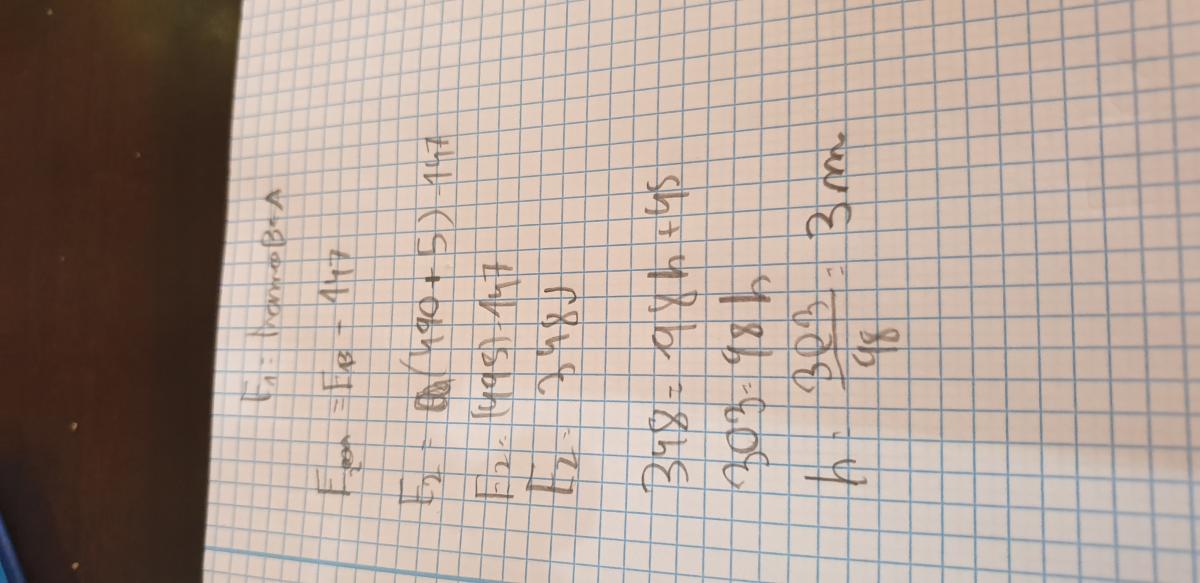 E₁ :
E₂ = E₁B - 147
E₂ = (490 + 5) - 147
E₂ = (495) - 147
E₂ = 348J
348 = 98h + 45
303 = 98h
h = 303/98 = 3m